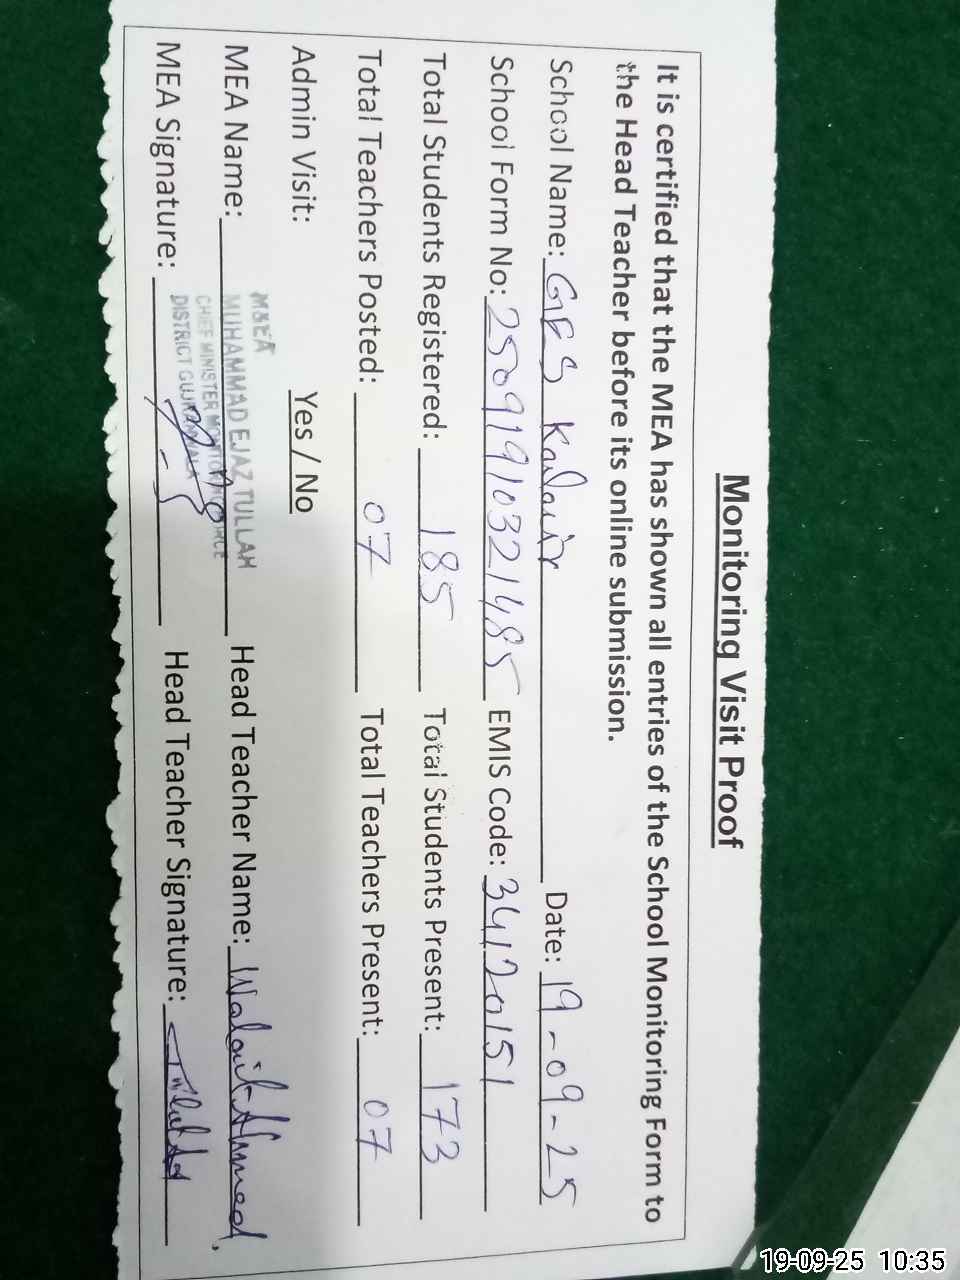 Monitoring Visit Proof
It is certified that the MEA has shown all entries of the School Monitoring Form to
the Head Teacher before its online submission.
School Name: GES Kalair Date: 19-09-25
School Form No: 25091910321485 EMIS Code: 34120151
Total Students Registered: 185 Total Students Present: 173
Total Teachers Posted: 07 Total Teachers Present: 07
Admin Visit: Yes / No
MEA Name: Head Teacher Name: Ahmed
MEA Signature: Head Teacher Signature:
M&EA
MUHAMMAD EJAZ TULLAH
CHIEF MINISTER MONITORING FORCE
DISTRICT GUJRANWALA
19-09-25 10:35